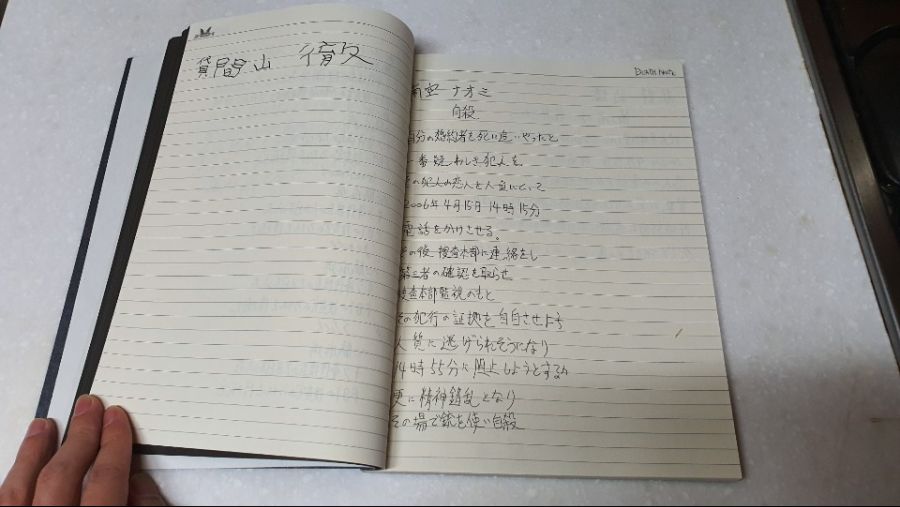 間山 徹
DEATH NOTE
南空 ナオミ
自殺
自分の婚約者を死に追いやったと
一番疑わしき犯人を
その犯人の恋人を人質にとって
2006年4月15日 14時15分
電話をかけさせる。
その後 捜査本部に連絡をし
第三者の確認を取らせ
捜査本部監視のもと
その犯行の証拠を自白させよう
人質に逃げられそうになり
14時55分に阻止しようとするが
更に精神錯乱となり
その場で銃を使い自殺